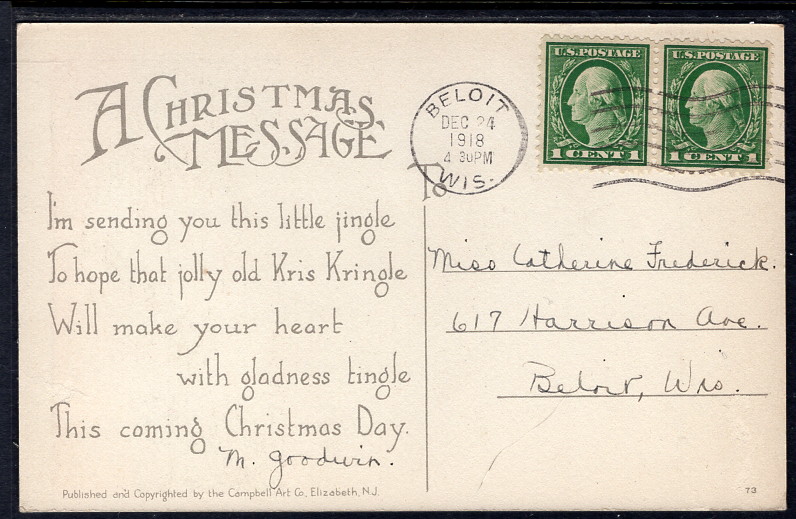 A CHRISTMAS
MESSAGE
I'm sending you this little jingle
To hope that jolly old Kris Kringle
Will make your heart
with gladness tingle
This coming Christmas Day.
M. Goodwin.
Published and Copyrighted by the Campbell Art Co., Elizabeth, N.J.
BELOIT
DEC 24
1918
4 30PM
WIS.
U.S. POSTAGE
1 CENT 1
U.S. POSTAGE
1 CENT 1
To
Miss Catherine Frederick.
617 Harrison Ave.
Beloit, Wis.
73